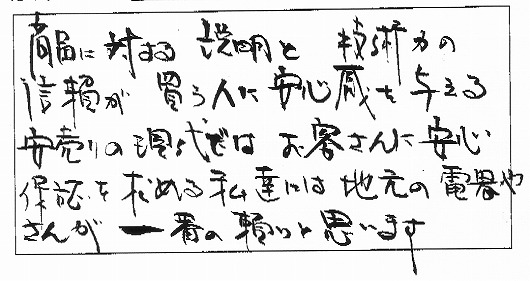 商品に対する説明と技術力の
信頼が買う人に安心感を与える
安売りの現代ではお客さんに安心
保証を求める私達には地元の電器や
さんが一番の頼りと思います